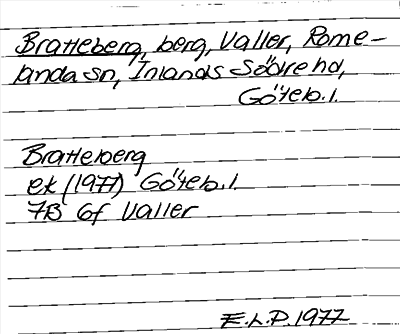 Bratteberg, berg, Valler, Rome-
landa sn, Inlands Södre hd,
Göteb. l.
Bratteberg
ek (1977) Göteb. l.
7B 6f Valler
E.L.P 1977